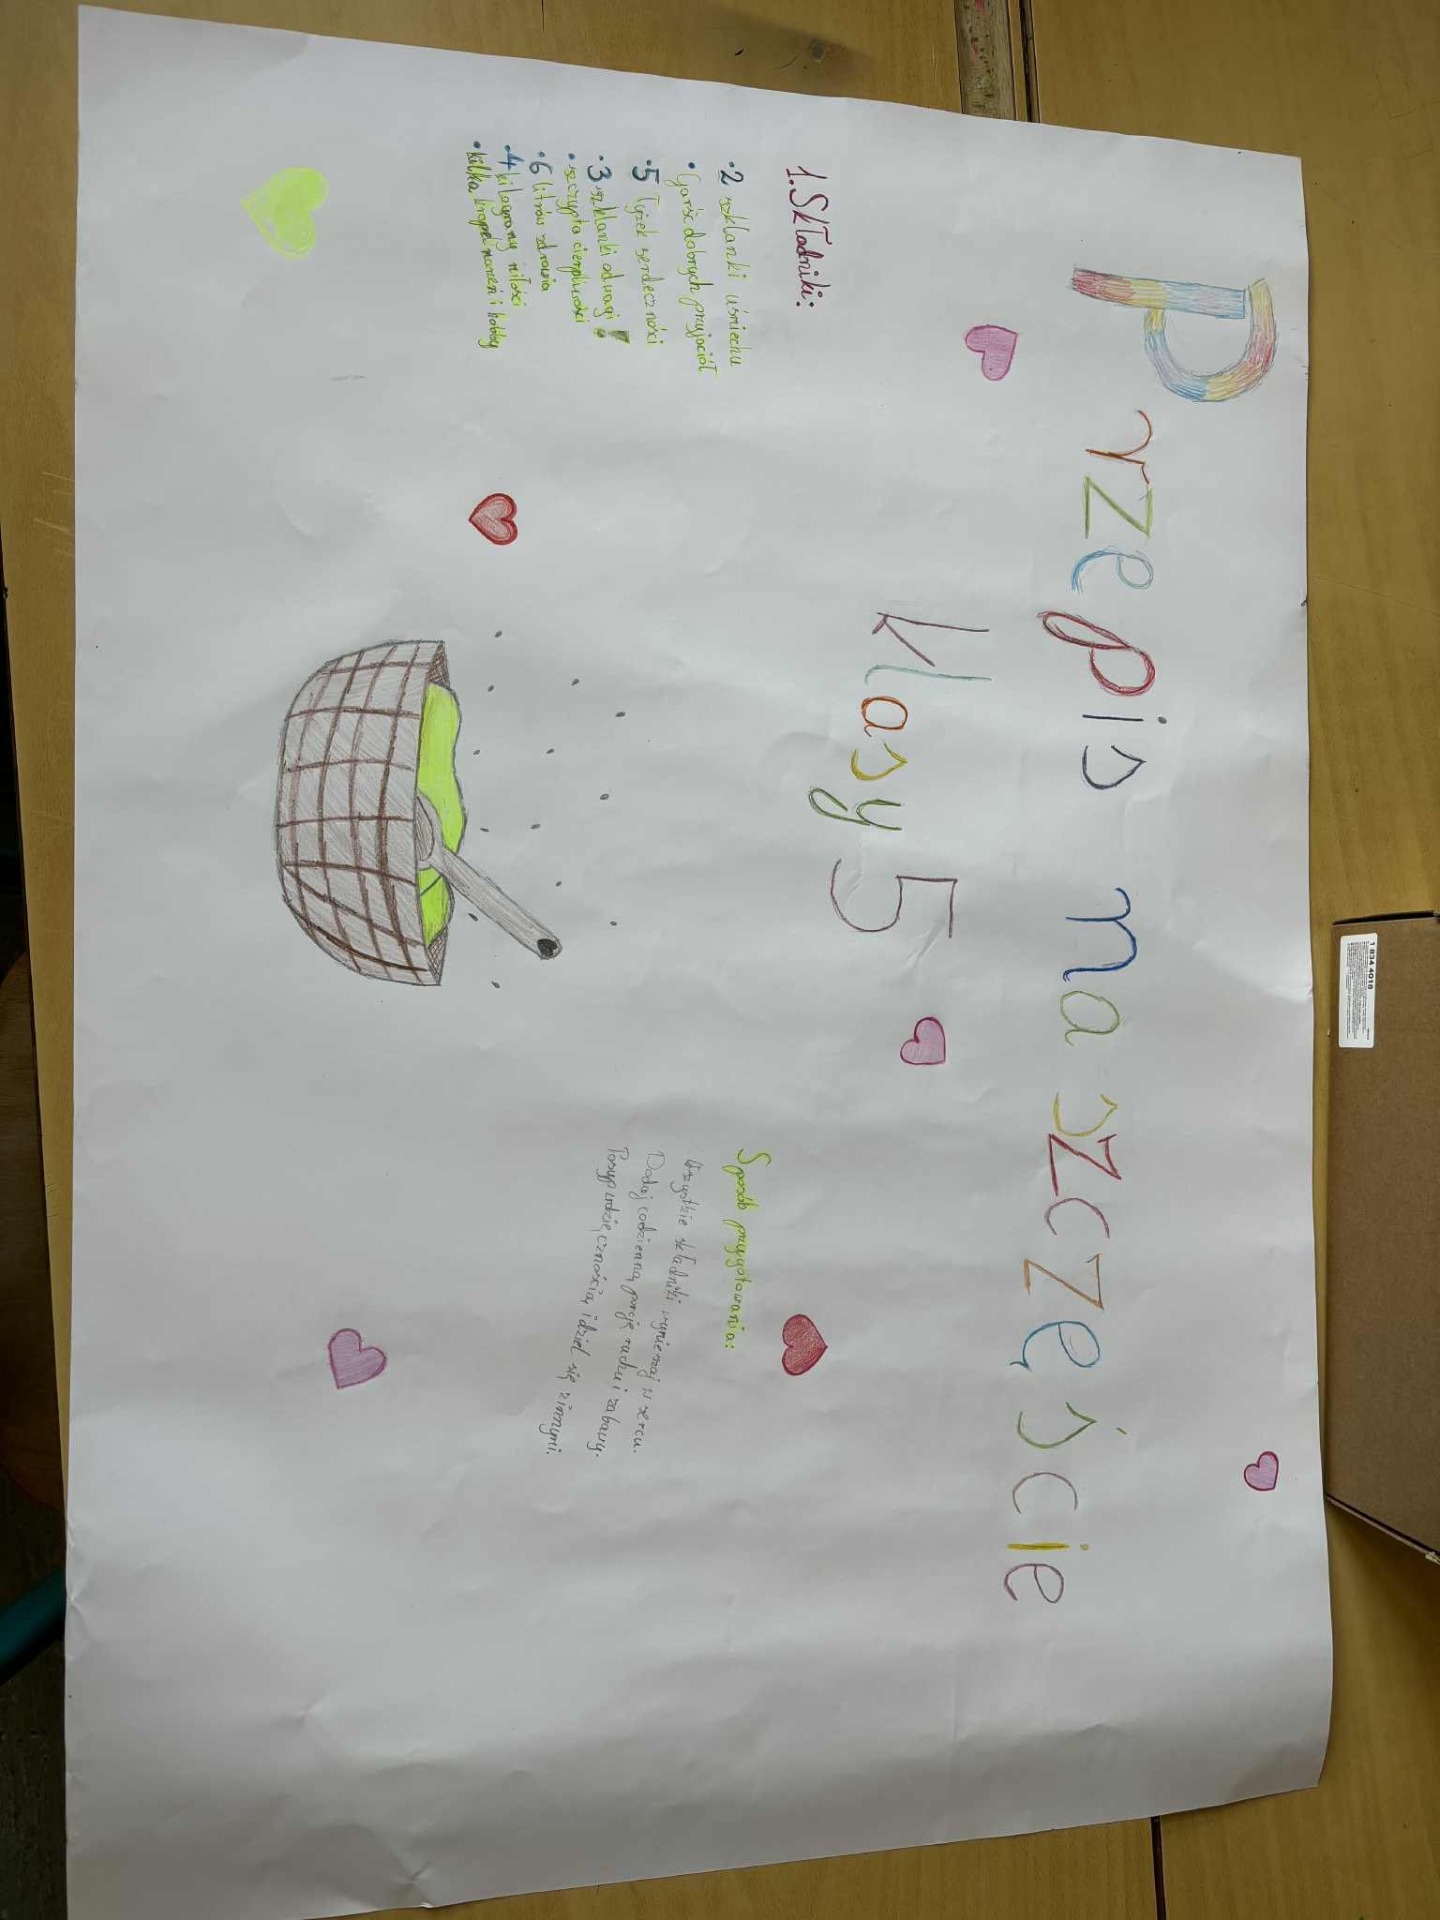 Przepis na szczęście
klasy 5
1. Składniki:
•2 szklanki uśmiechu
• Garść dobrych przyjaciół
•5 Łyżek serdeczności
•3 szklanki odwagi
• szczypta cierpliwości
•6 litrów zdrowia
•4 kilogramy miłości
• kilka kropel marzeń i hobby
Sposób przygotowania:
Wszystkie składniki wymieszaj w sercu.
Dodaj codzienną porcję ruchu i zabawy.
Posyp wdzięcznością i dziel się z innymi.
1 834 4018